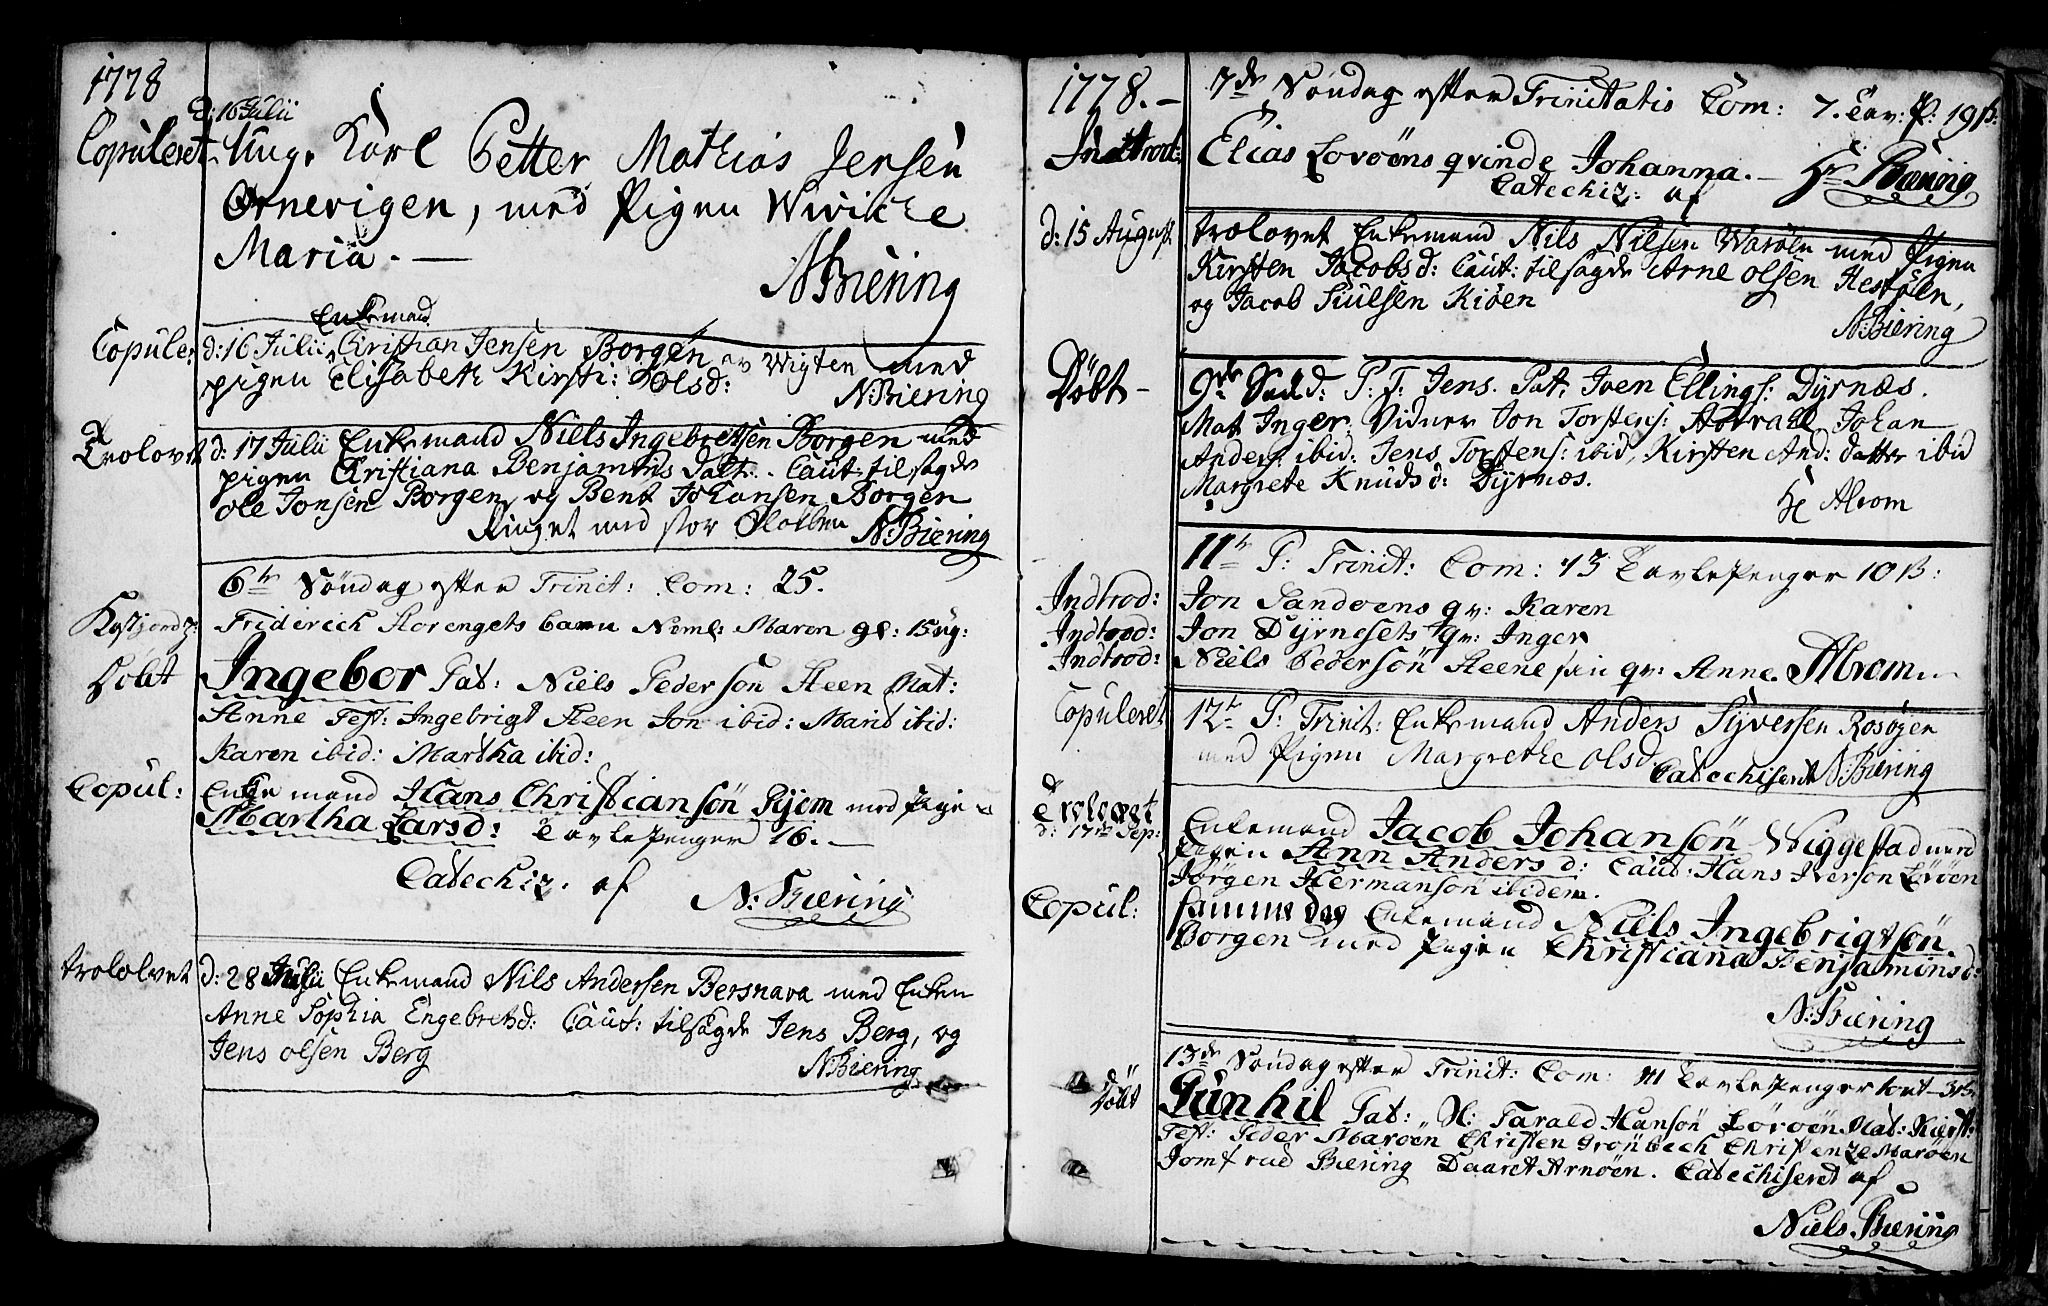 1778
d: 16 Julii
Copuleret Unge Karl Petter Mathias Jensen
Ornevigen, med Pigen Wivicke
Maria. —
N Biering
Enkemand
Copule: d: 16 Julii Christian Jensen Borgen av Wigten med
pigen Elisabeth Kirsti: Olsd: N: Biering
Trolovet d: 17 Julii Enkemand Niels Ingebretsen Borgen med
pigen Christiana Benjamins datt. Caut: tilsagde
Ole Jonsen Borgen og Bent Johansen Borgen
Ringet med stor Klokken N: Biering
6te Söndag efter Trinit: Com: 25.
Friderich Korengets barn Neml: Maren gl: 15 ug:
Döbt Ingebor Pat: Niels Pederson Steen Mat:
Anne Test: Ingebrigt Steen Jon ibid: Marit ibid:
Karen ibid: Martha ibid:
Copul: Enkemand Hans Christiansön med Pigen
Martha Larsd: Tavlepenger 16. —
Catechiz: af N: Biering
trolovet d: 28 Julii Enkemand Nils Andersen Bersnava med Enken
Anne Sophia Engebretsd: Caut: tilsagde Jens Berg, og
Jens olsen Berg
N Biering
1778. — 7de Söndag efter Trinitatis Com: 7. Tav: P: 19 ß:
Indtrod: Elias Lovöens qvinde Johanna. —
Catechiz: af Hr Biering
d: 15 August trolovet Enkemand Nils Nilsen Waröen med Pigen
Kirsten Jacobsd: Caut: tilsagde Arne Olsen Hestöen,
og Jacob Siulsen Kiöen
N: Biering
Döbt — 9de Sönd: P: T: Jens. Pat: Iven Ellings: Dyrnæs.
Mat Inger. Vidner Jon Torstens: Johan
Anders: ibid: Jens Torstens: ibid, Kirsten And: datter ibid
Margrete Knudsd: Dyrnæs.
Hr Alrom
11te P: Trinit: Com: 13 Tavlepenger 10 ß:
Indtrod: Jon Sandöens qv: Karen
Indtrod: Jon Dyrnesets qv: Inger
Indtrod: Niels Pedersön Steene qv: Anne. Alrom
Copuleret 12te P: Trinit: Enkemand Anders Syversen Rosöjen
med Pigen Margrethe Olsd
Catechiseret N: Biering
Trolovet
d: 17de Sep: Enkemand Jacob Johansön Wiggestad med
Pigen Ann Andersd: Caut: Hans Iverson Lövöen
Jörgen Hermansön ibidem.
Copul: samme dag Enkemand Niels Ingebrigtsön
Borgen med Pigen Christiana Benjaminsd:
N: Biering
13de Söndag efter Trinit: Com: 111 Tavlepenger
Döbt Gunhil Pat: H: Tarald Hansön Lövöen Mat: Kirst:
Test: Peder Maröen Christen Grönbech Christenze Maröen
Jomfrue Biering Daaret Arnöen. Catechiseret af
Niels Biering